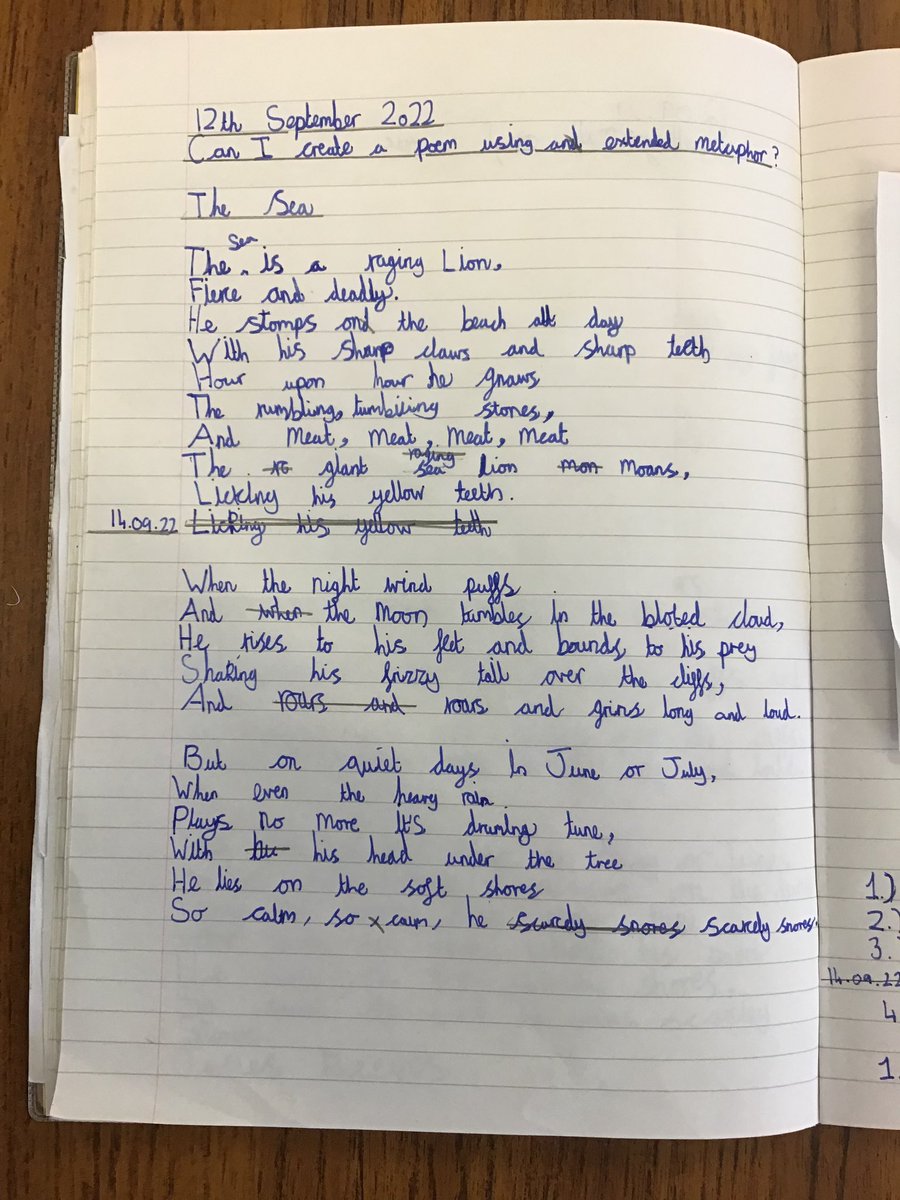 12th September 2022
Can I create a poem using and extended metaphor?
The Sea
The sea is a raging Lion,
Fierce and deadly.
He stomps ond the beach all day
With his sharp claws and sharp teeth
Hour upon hour he gnaws
The rumbling, tumbiling stones,
And meat, meat, meat, meat
The giant raging sea lion mon moans,
Licking his yellow teeth.
14.09.22 Licking his yellow teeth
When the night wind puffs
And when the moon tumbles in the bloted cloud,
He rises to his feet and bounds to his prey
Shaking his frizzy tail over the cliffs,
And rours and roars and grins long and loud.
But on quiet days in June or July,
When even the heavy rain
Plays no more it's druming tune,
With his head under the tree
He lies on the soft shores
So calm, so calm, he scarcdy snores scarcely snores.
1.)
2.)
3.
14.09.22
4
1.